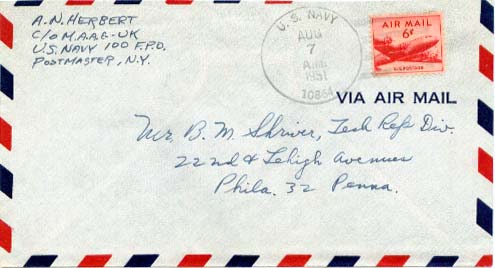 A.N. HERBERT
C/O M.A.A.G-UK
U.S. NAVY 100 F.P.O.
POSTMASTER, N.Y.
U. S. NAVY
AUG
7
A.M.
1951
10864
AIR MAIL
6¢
U.S. POSTAGE
VIA AIR MAIL
Mr. B. M. Shriver, Tech Reps Div.
22nd & Lehigh Avenues
Phila. 32 Penna.